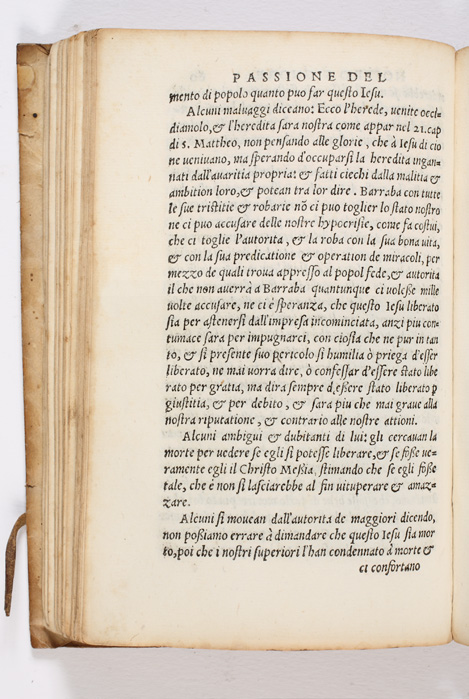 PASSIONE DEL
mento di popolo quanto puo far questo Iesu.
Alcuni malvaggi diceano: Ecco l'herede, venite occi-
diamolo, & l'heredita sara nostra come appar nel 21. cap
di s. Mattheo, non pensando alle glorie, che à Iesu di cio
ne venivano, ma sperando d'occuparsi la heredita ingan-
nati dall'avaritia propria: & fatti ciechi dalla malitia &
ambition loro, & potean tra lor dire. Barraba con tutte
le sue tristitie & robarie nõ ci puo toglier lo stato nostro
ne ci puo accusare delle nostre hypocrisie, come fa costui,
che ci toglie l'autorita, & la roba con la sua bona uita,
& con la sua predicatione & operation de miracoli, per
mezzo de quali trova appresso al popol fede, & autorita
il che non auerrà a Barraba quantunque ci volesse mille
uolte accusare, ne ci è speranza, che questo Iesu liberato
sia per astenersi dall'impresa incominciata, anzi piu con-
tumace sara per impugnarci, con ciosia che ne pur in tan
to, & si presente suo pericolo si humilia ò priega d'esser
liberato, ne mai vorra dire, ò confessar d'essere stato libe
rato per gratia, ma dira sempre d'essere stato liberato p
giustitia, & per debito, & sara piu che mai grave alla
nostra riputatione, & contrario alle nostre attioni.
Alcuni ambigui & dubitanti di lui: gli cercauan la
morte per vedere se egli si potesse liberare, & se fosse ue-
ramente egli il Christo Messia, stimando che se egli fosse
tale, che è non si lasciarebbe al fin uituperare & amaz-
zare.
Alcuni si movean dall'autorita de maggiori dicendo,
non possiamo errare à dimandare che questo Iesu sia mor
to, poi che i nostri superiori l'han condennato à morte &
ci confortano